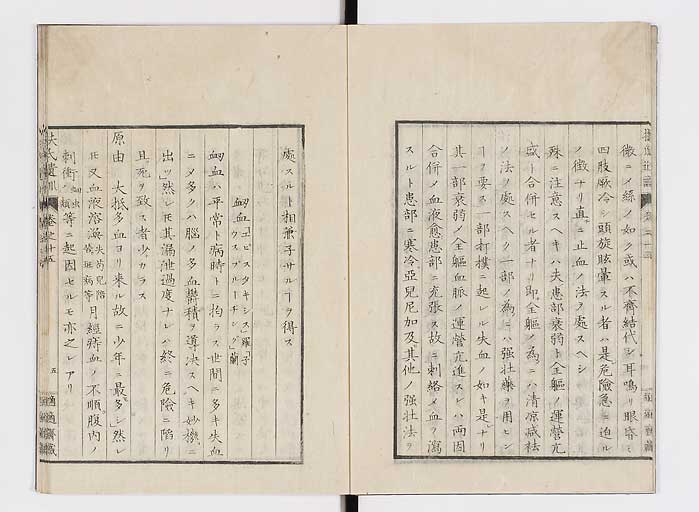 微ニノ絲ノ如ク或ハ不齊結代シ耳鳴リ眼昏ミ
四肢厥冷シ頭旋眩暈スル者ハ是危險急ニ迫ル
ノ徴ナリ直ニ止血ノ法ヲ處スヘシ
殊ニ注意スヘキハ失患部衰弱ト全軀ノ運營亢
盛ト合併セル者ナリ即全軀ノ為ニハ清凉減損
ノ法ヲ處スヘク一部ノ為ニハ強壮藥ヲ用ヒン
ヿヲ要ス一部打撲ニ起レル失血ノ如キ是ナリ
其一部衰弱メ全軀血脈ノ運營亢進スレハ両因
合併ノ血液愈患部ニ充張ス故ニ刺絡メ血ヲ瀉
スルト患部ニ寒冷亞兒尼加及其他ノ強壮法ヲ
處スルト相兼子サルヿヲ得ス
衂血「エピスタキシス」羅「子
ウスブルーヂング」蘭
衂血ハ平常ト病時トニ拘ラス世間ニ多キ失血
ニメ多クハ腦ノ多血鬱積ヲ導泱スヘキ妙機ニ
出ツ然レモ其漏泄過度ナレハ終ニ危險ニ陷リ
且死ヲ致ス者少カラス
原由 大抵多血ヨリ来ル故ニ少年ニ最多シ然レ
モ又血液溶渙 失苟兒陪 黄胆病等 月經痔血ノ不順腹内ノ
刺衝 蚘虫ノ類 等ニ起因セルモ亦之レアリ
扶氏遺訓 卷之十五 五 適適齋藏